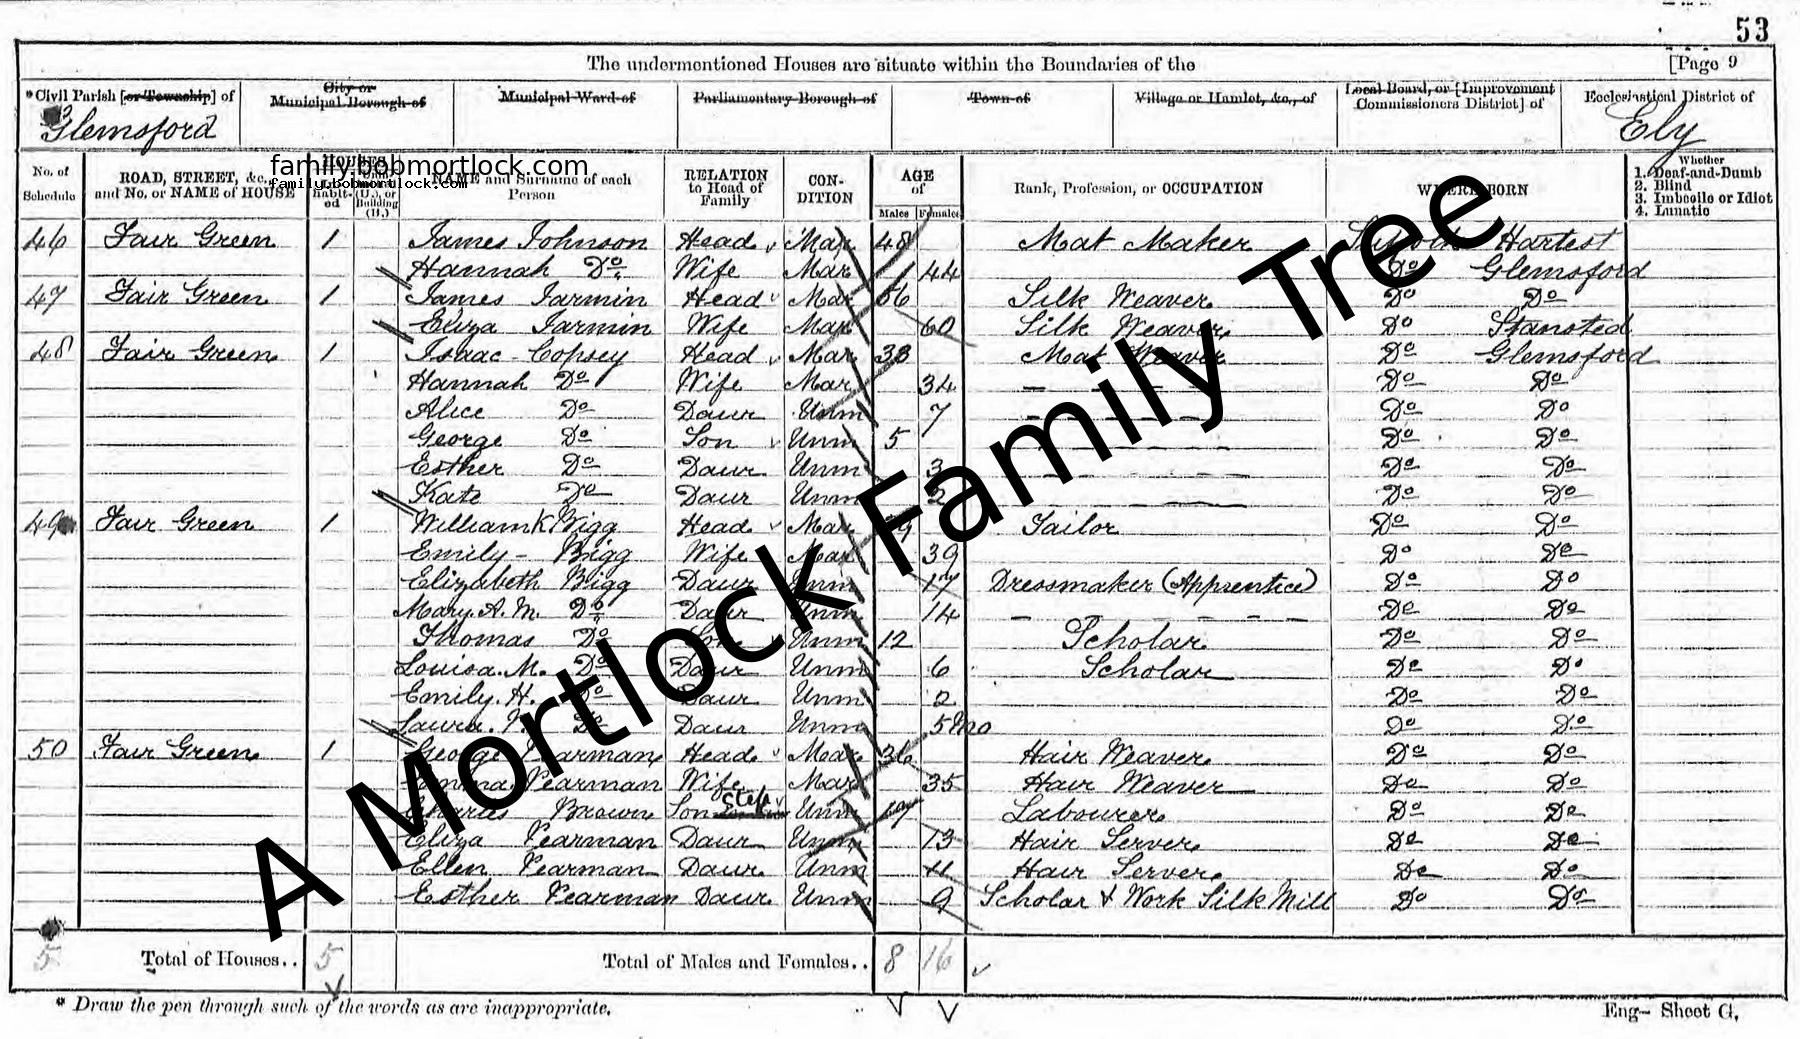 53
The undermentioned Houses are situate within the Boundaries of the [Page 9
*Civil Parish [or Township] of City or Municipal Borough of Municipal Ward of Parliamentary Borough of Town of Village or Hamlet, &c., of Local Board, or [Improvement Commissioners District] of Ecclesiastical District of
Glemsford Ely
family.bobmortlock.com
family.bobmortlock.com
No. of Schedule ROAD, STREET, &c., and No. or NAME of HOUSE HOUSES Inhabited Building (B.) NAME and Surname of each Person RELATION to Head of Family CONDITION AGE of Males Females Rank, Profession, or OCCUPATION WHERE BORN Whether 1. Deaf-and-Dumb 2. Blind 3. Imbecile or Idiot 4. Lunatic
46 Fair Green 1 James Johnson Head Mar 48 Mat Maker Suffolk Hartest
Hannah Do Wife Mar 44 Do Glemsford
47 Fair Green 1 James Jarmin Head Mar 56 Silk Weaver Do Do
Eliza Jarmin Wife Mar 60 Silk Weaver Do Stansted
48 Fair Green 1 Isaac Copsey Head Mar 33 Mat Weaver Do Glemsford
Hannah Do Wife Mar 34 Do Do
Alice Do Daur Unm 7 Do Do
George Do Son Unm 5 Do Do
Esther Do Daur Unm 3 Do Do
Kate Do Daur Unm 2 Do Do
49 Fair Green 1 William K Bigg Head Mar Tailor Do Do
Emily Bigg Wife Mar 39 Do Do
Elizabeth Bigg Daur Unm 17 Dressmaker (Apprentice) Do Do
Mary. A. M. Do Daur Unm 14 Do Do
Thomas Do Son Unm 12 Scholar Do Do
Louisa. M. Do Daur Unm 6 Scholar Do Do
Emily. H. Do Daur Unm 2 Do Do
Laura. Do Daur Unm 5 Mo Do Do
50 Fair Green 1 George Pearman Head Mar 36 Hair Weaver Do Do
Emma Pearman Wife Mar 35 Hair Weaver Do Do
Charles Brown Son Step Unm Labourer Do Do
Eliza Pearman Daur Unm 13 Hair Server Do Do
Ellen Pearman Daur Unm 11 Hair Server Do Do
Esther Pearman Daur Unm 9 Scholar & Work Silk Mill Do Do
5 Total of Houses.. 5 Total of Males and Females.. 8 16
* Draw the pen through such of the words as are inappropriate. Eng- Sheet G.
A Mortlock Family Tree